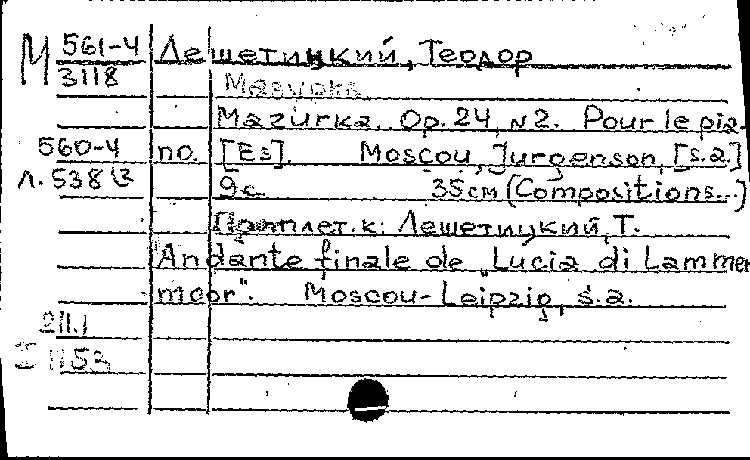 М 561-4 Лешетицкий, Теодор
3118 Мазурка
Mazurka. Op. 24, N2. Pour le pia-
560-4 no. [Es]. Moscou, Jurgenson, [s.a.]
Л. 538 9с. 35см (Compositions...)
Приплет. к: Лешетицкий, Т.
"Andante finale de "Lucia di Lammer-
moor". Moscou-Leipzig, s.a.
211.1
I 1153